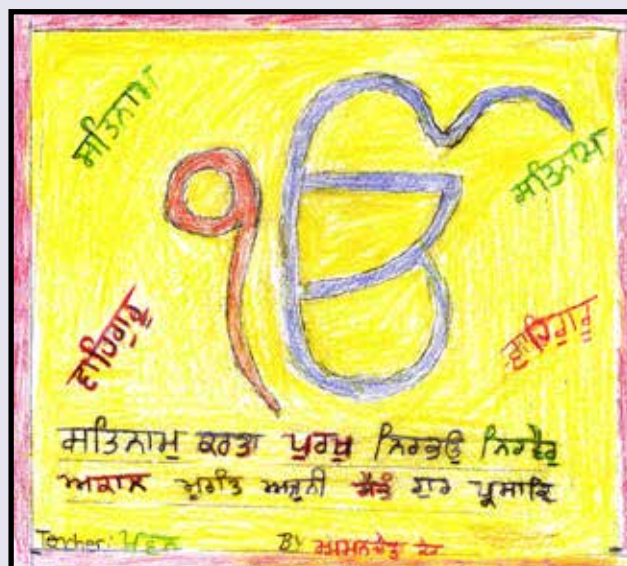 ਸਤਿਨਾਮ
ਸਤਿਨਾਮ
ੴ
ਵਾਹਿਗੁਰੂ
ਵਾਹਿਗੁਰੂ
ਸਤਿਨਾਮੁ ਕਰਤਾ ਪੁਰਖੁ ਨਿਰਭਉ ਨਿਰਵੈਰੁ
ਅਕਾਲ ਮੂਰਤਿ ਅਜੂਨੀ ਸੈਭੰ ਗੁਰ ਪ੍ਰਸਾਦਿ
Teacher: By